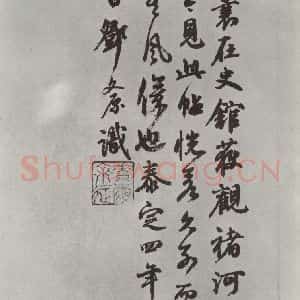 曩在史館獲觀褚河
見此帖恍若久別而
風儀也泰定四年
日鄧文原識
Shufawang.CN